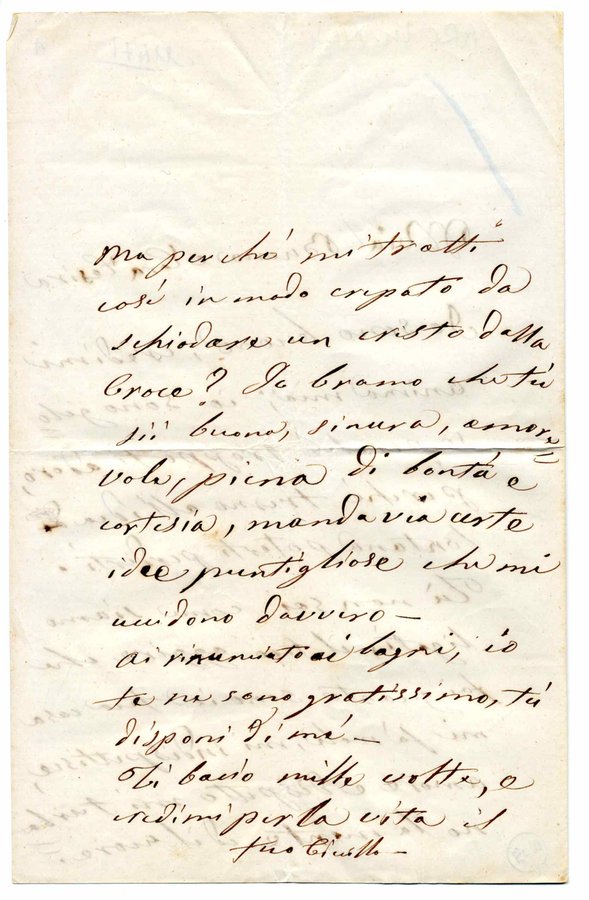 Ma perché mi tratti
così in modo crepato da
schiodare un cristo dalla
Croce? Io bramo che tù
sii buona, sincera, amore=
vole, piena di bontà e
cortesia, manda via certe
idee puntigliose che mi
uccidono davvero—
Ai rinunciato ai bagni, io
te ne sono gratissimo, tù
disponi di mé—
Ti bacio mille volte, e
credimi per la vita il
tuo